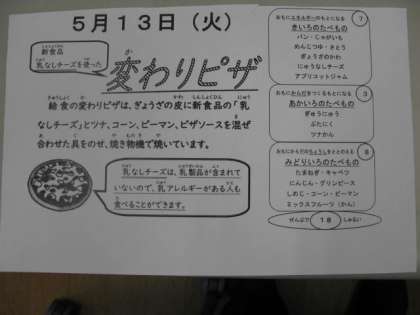 5月13日（火）
新食品
乳なしチーズを使った
変わりピザ
給食の変わりピザは、ぎょうざの皮に新食品の「乳
なしチーズ」とツナ、コーン、ピーマン、ピザソースを混ぜ
合わせた具をのせ、焼き物機で焼いています。
乳なしチーズは、乳製品が含まれて
いないので、乳アレルギーがある人も
食べることができます。
おもにエネルギーのもとになる
7
きいろのたべもの
パン・じゃがいも
めんじつゆ・さとう
ぎょうざのかわ
にゅうなしチーズ
アプリコットジャム
おもにからだをつくるもとになる
3
あかいろのたべもの
ぎゅうにゅう
ぶたにく
ツナかん
おもにからだのちょうしをととのえる
8
みどりいろのたべもの
たまねぎ・キャベツ
にんじん・グリンピース
しめじ・コーン・ピーマン
ミックスフルーツ（かん）
ぜんぶで 18 しゅるい